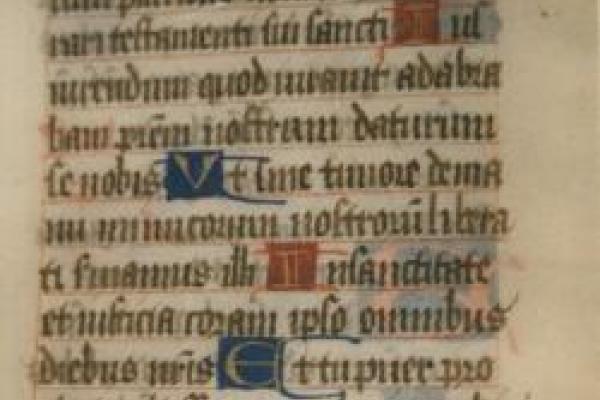 rari testamenti sui sancti Ius
iurandum quod iurauit ad abra
ham prem nostrum daturum
se nobis Ut sine timore de ma
nu inimicorum nostrorū libera
ti seruiamus illi In sanctitate
et iusticia coram ipso omnibus
diebus nr̄is Et tu puer pro